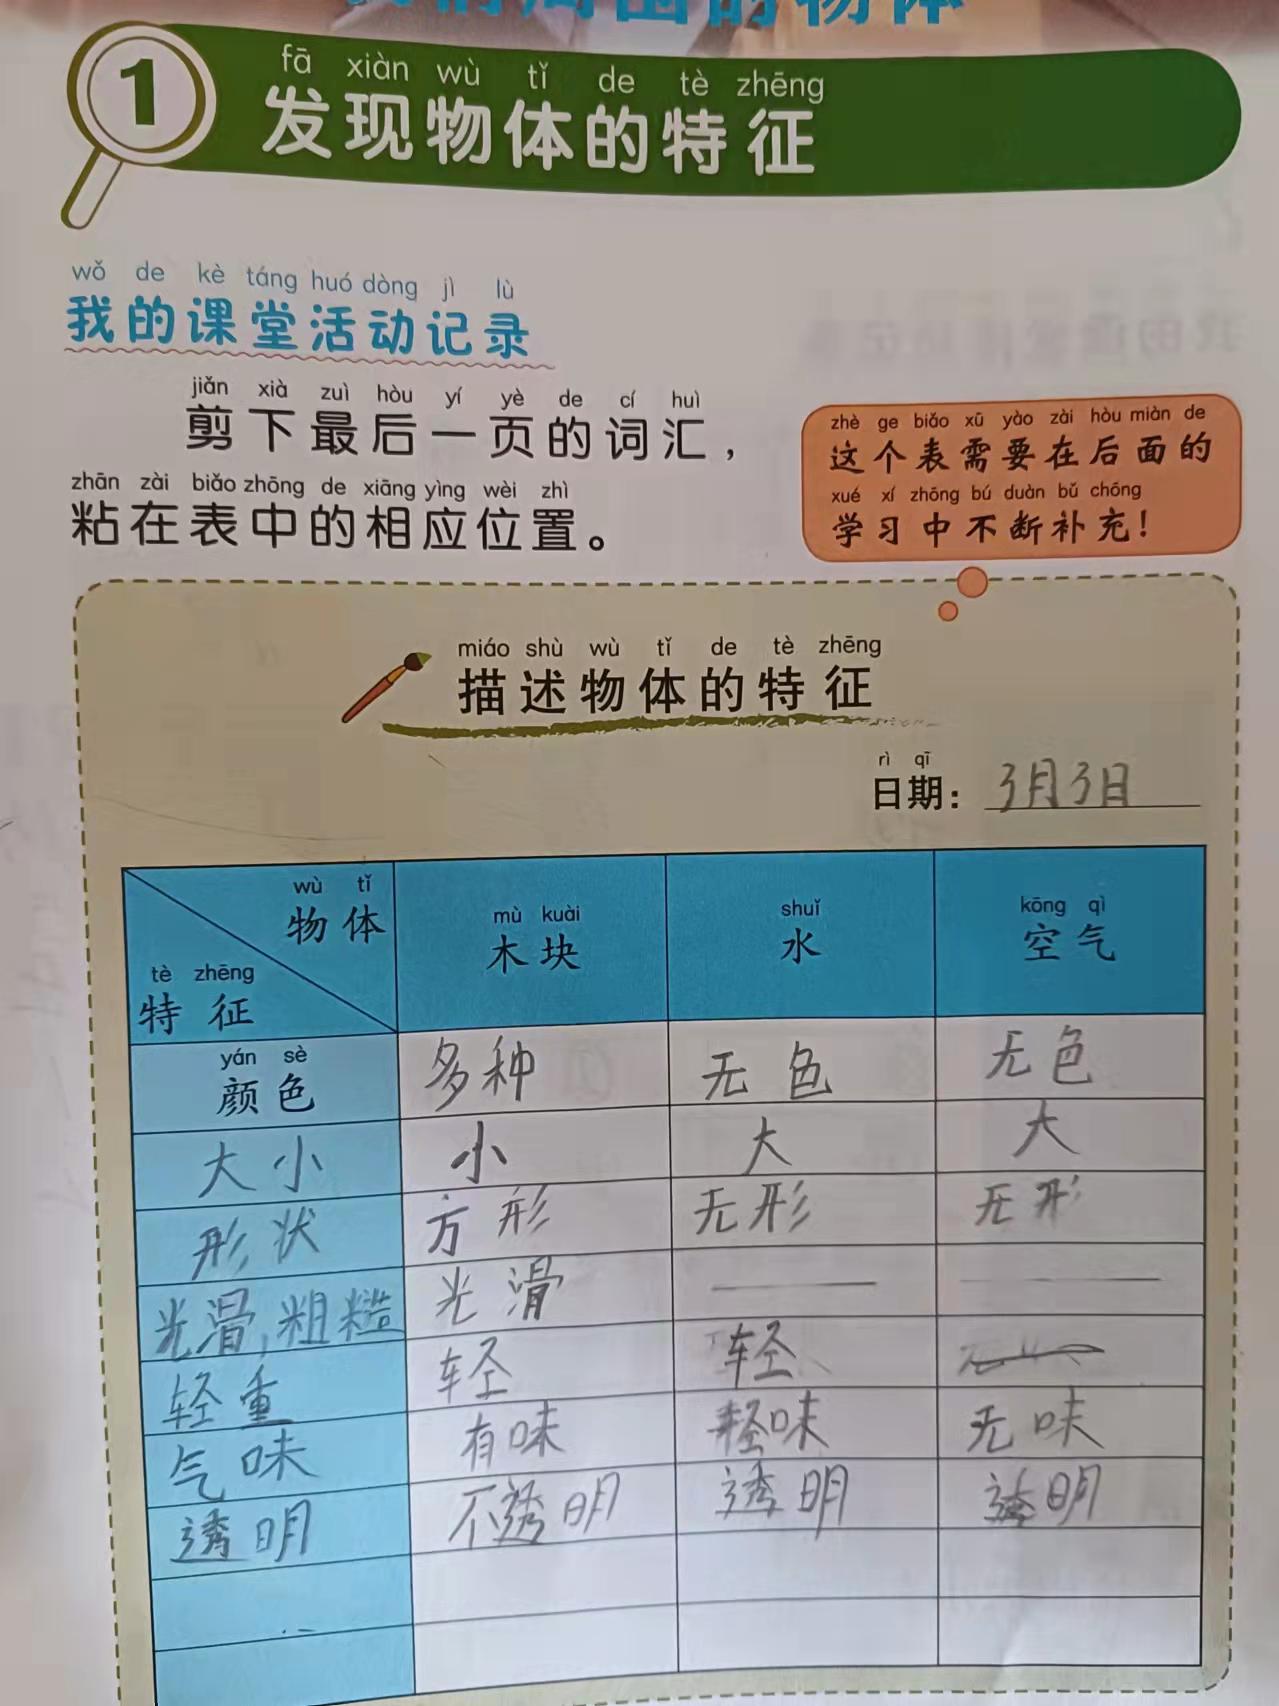 我们周围的物体
1
fā xiàn wù tǐ de tè zhēng
发现物体的特征
wǒ de kè táng huó dòng jì lù
我的课堂活动记录
jiǎn xià zuì hòu yí yè de cí huì
剪下最后一页的词汇，
zhān zài biǎo zhōng de xiāng yìng wèi zhì
粘在表中的相应位置。
zhè ge biǎo xū yào zài hòu miàn de
这个表需要在后面的
xué xí zhōng bú duàn bǔ chōng
学习中不断补充！
miáo shù wù tǐ de tè zhēng
描述物体的特征
rì qī
日期：3月3日
wù tǐ
物体
tè zhēng
特征
mù kuài
木块
shuǐ
水
kōng qì
空气
yán sè
颜色 多种 无色 无色
大小 小 大 大
形状 方形 无形 无形
光滑,粗糙 光滑
轻重 轻 轻
气味 有味 味 无味
透明 不透明 透明 透明